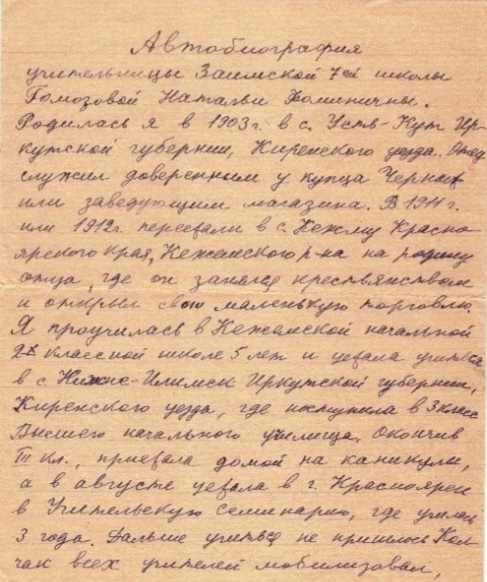 Автобиография
учительницы Заимской 7ой школы
Гомозовой Натальи Фоминичны.
Родилась я в 1903 г. в с. Усть-Кут Ир-
кутской губернии, Киренского уезда. Отец
служил доверенным у купца Черных
или заведующим магазина. В 1911 г.
или 1912 г. переехали в с. Кежму Красно-
ярского края, Кежемского р-на на родину
отца, где он занялся крестьянством
и открыл свою маленькую торговлю.
Я проучилась в Кежемской начальной
2х классной школе 5 лет и уехала учиться
в с. Нижне-Илимск Иркутской губернии,
Киренского уезда, где поступила в 3 класс
Высшего начального училища. Окончив
III кл., приехала домой на каникулы,
а в августе уехала в г. Красноярск
в Учительскую семинарию, где училась
3 года. Дальше учиться не пришлось Кол-
чак всех учителей мобилизовал,